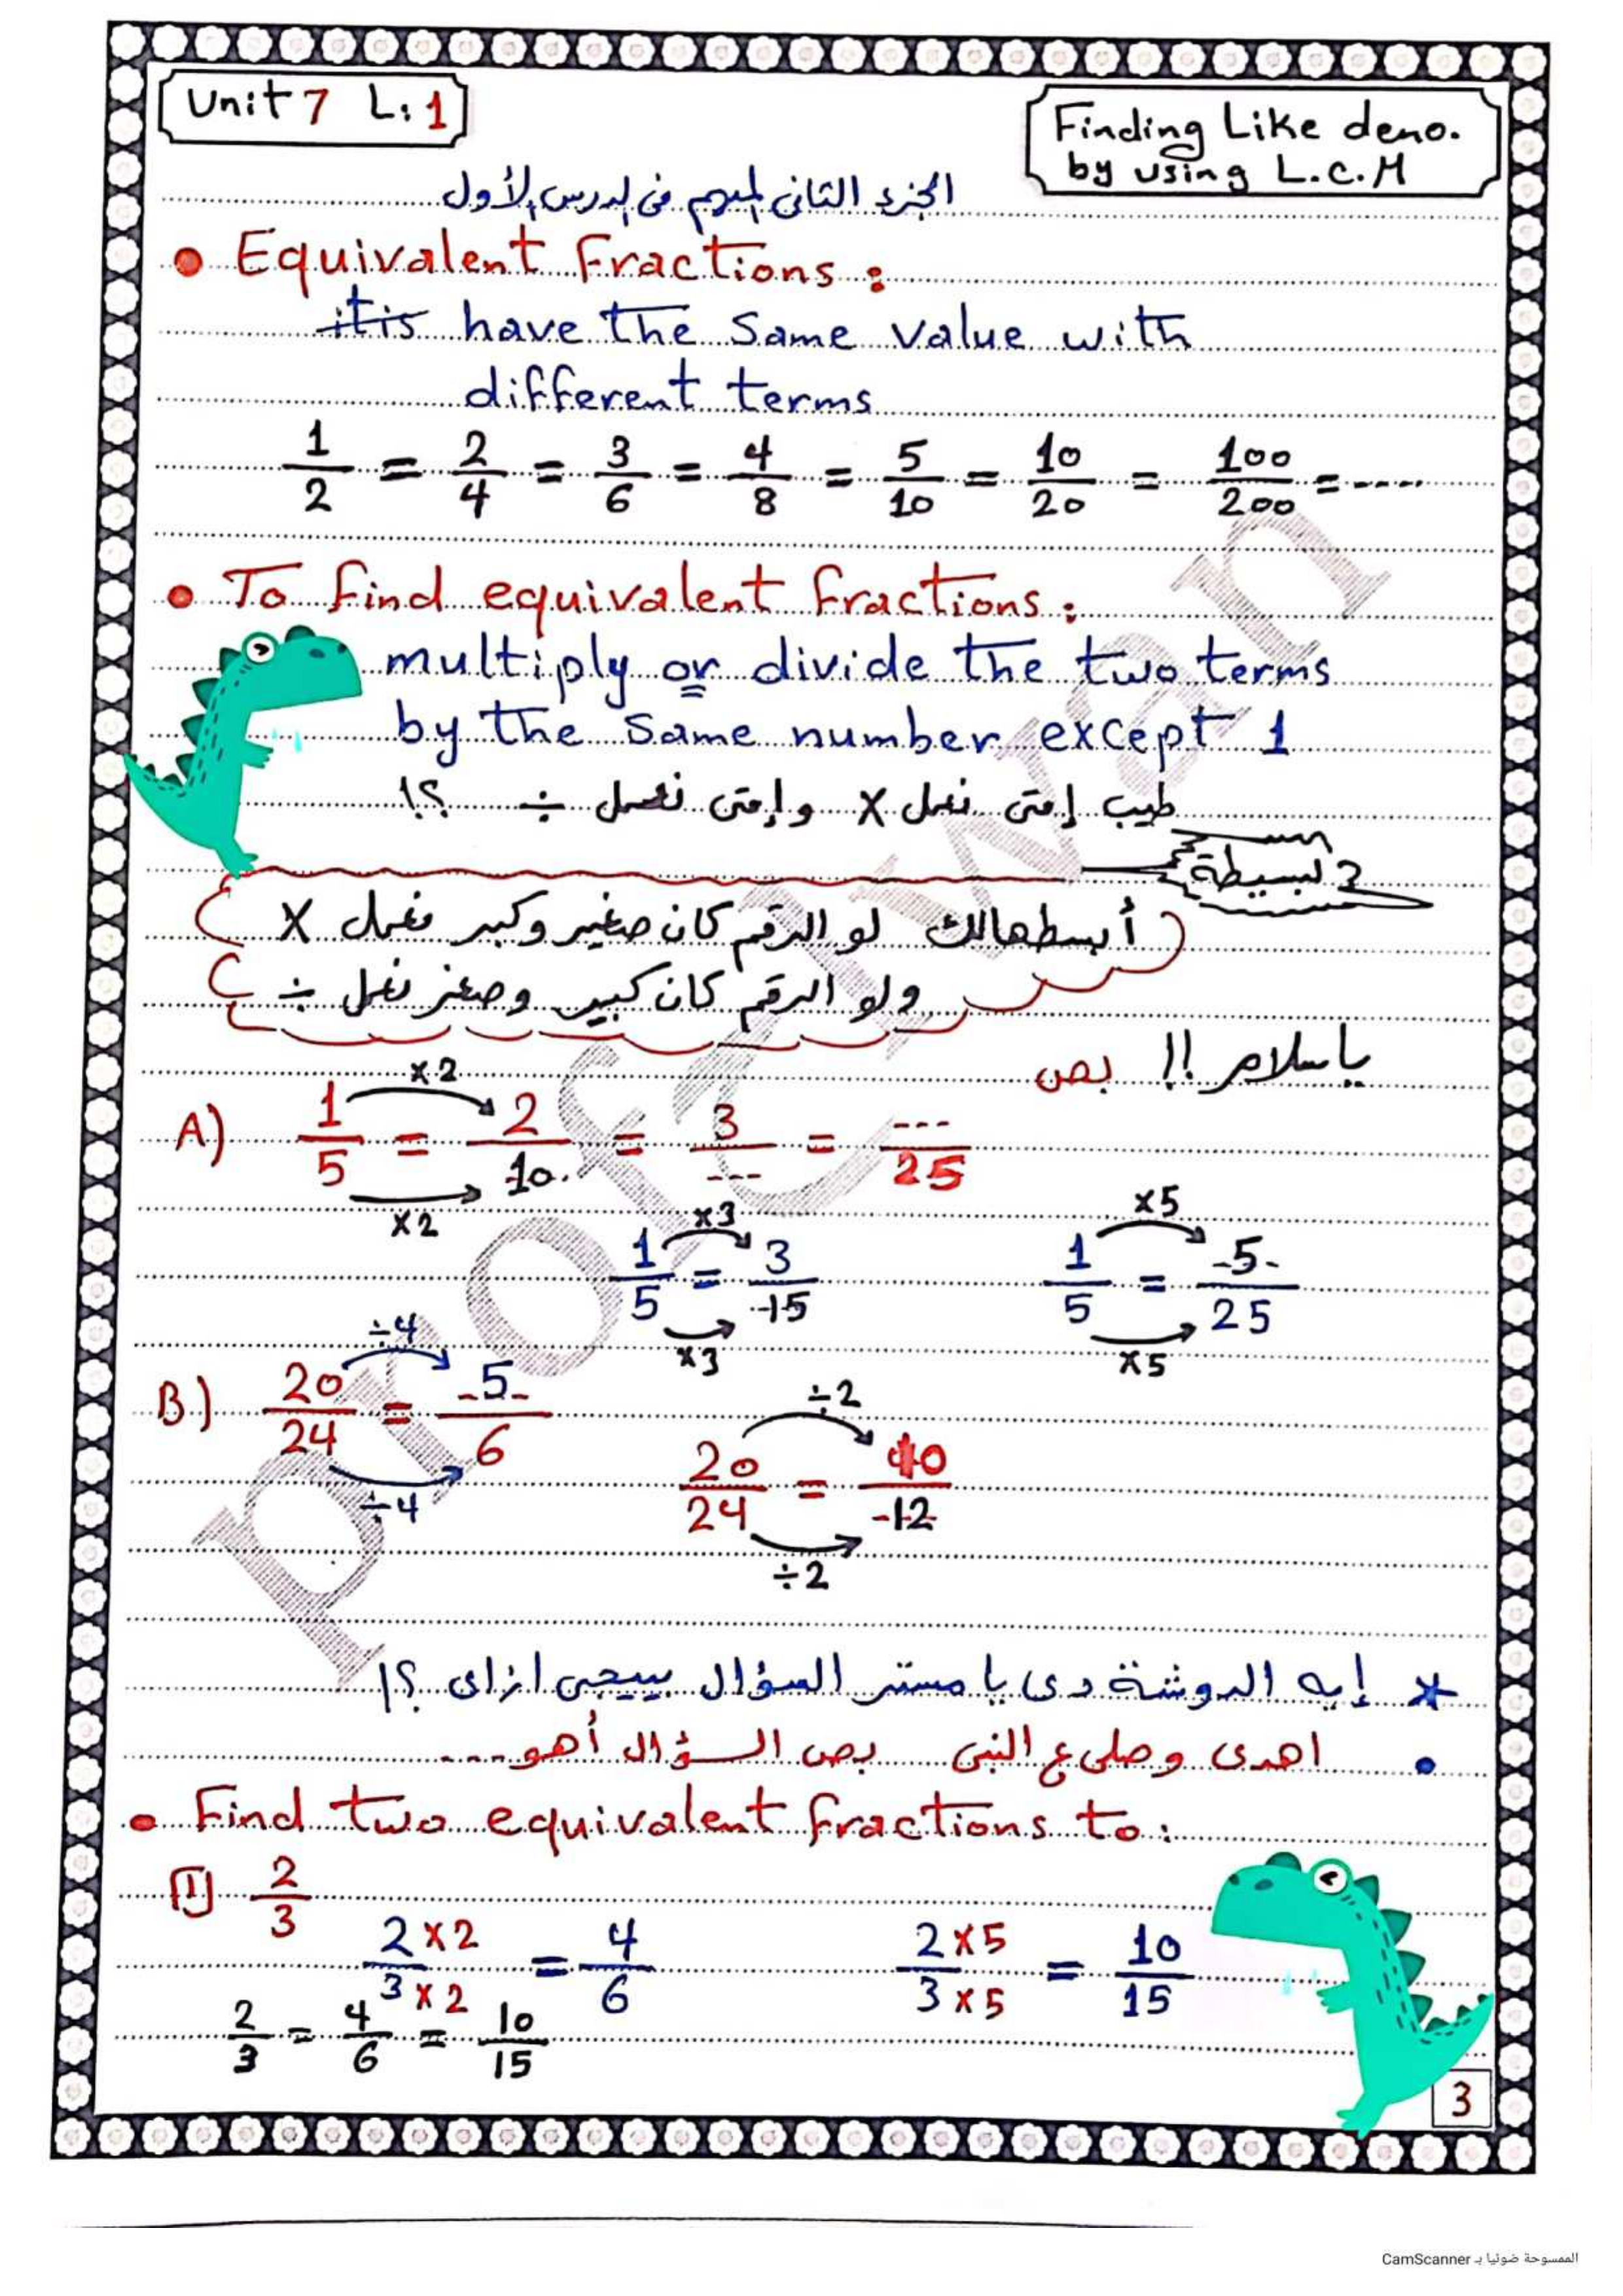 Unit 7 L: 1
Finding Like deno.
by using L.C.M
الجزء الثانى المهم فى الدرس الأول
• Equivalent Fractions :
it is have the same value with
different terms
1/2 = 2/4 = 3/6 = 4/8 = 5/10 = 10/20 = 100/200 = ----
• To find equivalent fractions :
multiply or divide the two terms
by the same number except 1
طيب إمتى نعمل × وإمتى نعمل ÷ ؟!
بسيطة
أبسطهالك لو الرقم كان صغير وكبر نعمل ×
ولو الرقم كان كبير وصغر نعمل ÷
ياسلام !! بص
×2
A) 1/5 = 2/10 = 3/--- = ---/25
×2
×3 ×5
1/5 = 3/15 1/5 = 5/25
×3 ×5
÷4
B) 20/24 = 5/6
÷4
÷2
20/24 = 10/12
÷2
* إيه الدوشة دى يا مستر السؤال بييجى ازاى ؟!
• اهدى وصلى ع النبى بص السؤال أهو ----
• Find two equivalent fractions to :
1 2/3
2×2/3×2 = 4/6 2×5/3×5 = 10/15
2/3 = 4/6 = 10/15
3
الممسوحة ضوئيا بـ CamScanner